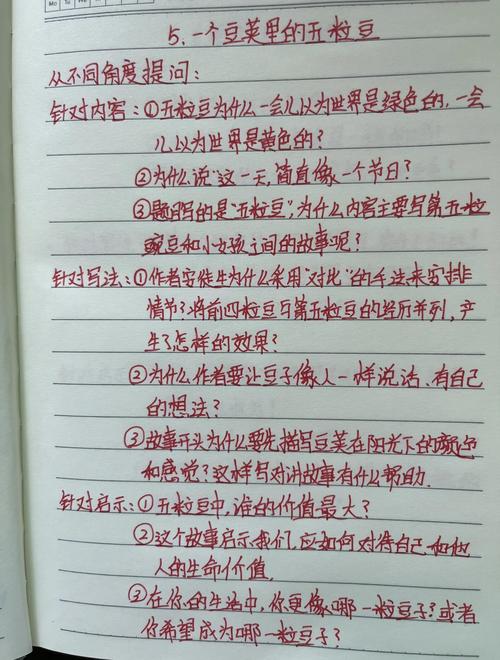 Mo Tu We Th Fr
5. 一个豆荚里的五粒豆
从不同角度提问:
针对内容:①五粒豆为什么一会儿以为世界是绿色的,一会
儿以为世界是黄色的?
②为什么说"这一天,简直像一个节日?
③题目写的是"五粒豆",为什么内容主要写第五粒
豌豆和小女孩之间的故事呢?
针对写法:①作者安徒生为什么采用"对比"的手法来安排
情节?将前四粒豆与第五粒豆的经历并列,产
生了怎样的效果?
②为什么作者要让豆子像人一样说话、有自己
的想法?
③故事开头为什么要先描写豆荚在阳光下的颜色
和感觉?这样写对讲故事有什么帮助.
针对启示:①五粒豆中,谁的价值最大?
②这个故事启示我们,应如何对待自己和他
人的生命价值.
③在你的生活中,你更像哪一粒豆子?或者
你希望成为哪一粒豆子?